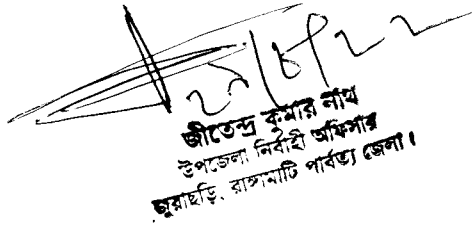 ২১/৮/২২
জীতেন্দ্র কুমার নাথ
উপজেলা নির্বাহী অফিসার
জুরাছড়ি, রাঙ্গামাটি পার্বত্য জেলা।